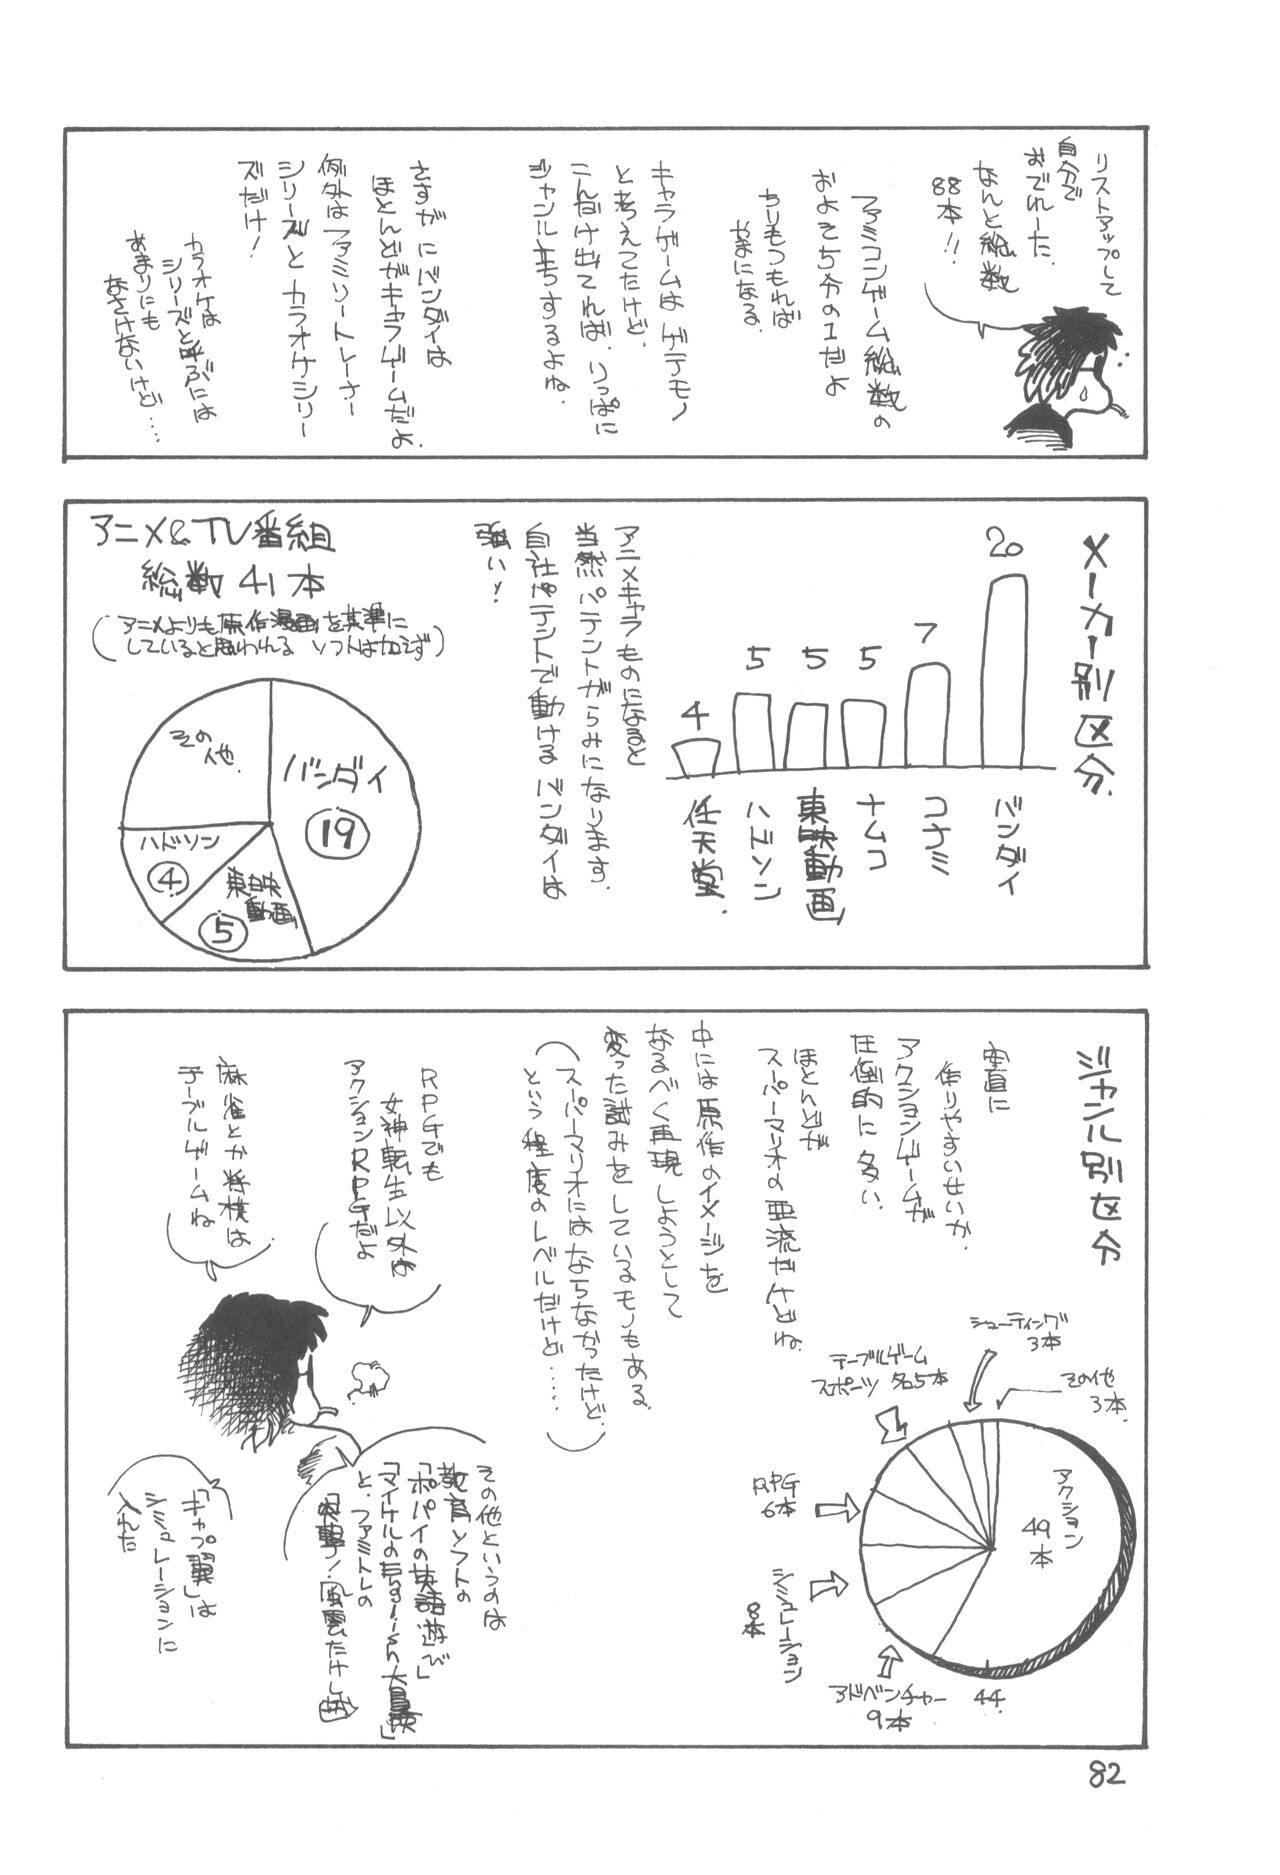 リストアップして
自分で
おでれーた。
なんと総数
88本!!
ファミコンゲーム総数の
およそ5分の1だよ
ちりもつもれば
やまになる。
キャラゲームはゲテモノ
と考えてたけど、
こんだけ出てれば、りっぱに
ジャンル立ちするよね。
さすがにバンダイは
ほとんどがキャラゲームだよ。
例外はファミリートレーナー
シリーズとカラオケシリー
ズだけ!
カラオケは
シリーズと呼ぶには
あまりにも
なさけないけど…‥
メーカー別区分
20
7
5
5
5
4
バンダイ
コナミ
ナムコ
東映動画
ハドソン
任天堂
アニメキャラものになると
当然パテントがらみになります。
自社パテントで動けるバンダイは
強い!
アニメ&TV番組
総数41本
(アニメよりも原作漫画を基準に
していると思われるソフトは加えず)
バンダイ
19
東映
動画
5
ハドソン
4
その
他
ジャンル別区分
率直に
作りやすいせいか、
アクションゲームが
圧倒的に多い。
ほとんどが
スーパーマリオの亜流だけどね。
中には原作のイメージを
なるべく再現しようとして
変った試みをしているモノもある。
(スーパーマリオにはならなかったけど、
という程度のレベルだけど…‥)
RPGでも
女神転生以外は
アクションRPGだよ
麻雀とか将棋は
テーブルゲームね
シューティング
3本
その他
3本
テーブルゲーム
スポーツ 各5本
RPG
6本
シミュレーション
8本
アドベンチャー
9本
アクション
49本
44
その他というのは
教育ソフトの
「ポパイの英語遊び」
「マイケルのEnglish大冒険」
と、ファミトレの
「突撃!風雲たけし城」
「キャプ翼」は
シミュレーションに
入れた
82